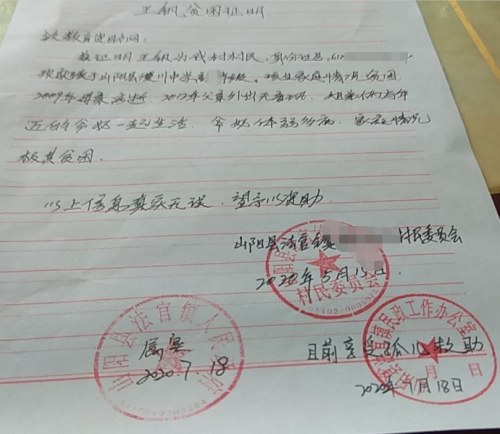 王钒贫困证明
教育资助网:
兹证明王钒为我村村民,身份证号:61
现就读于山阳县漫川中学高 年级。现在家庭情况贫困,
2009年母亲 2012年父亲外出无音讯,姐妹俩与年
迈的爷奶一起生活,爷奶体弱多病,家庭情况
极其贫困。
以上信息真实无误,望予以资助。
山阳县法官镇 村民委员会
2020年5月 日
村民委员会
山阳县法官镇人民政府
属实
2020.7.18
法官镇民政工作办公室
目前享受 救助
年 月 日
2020年7月18日